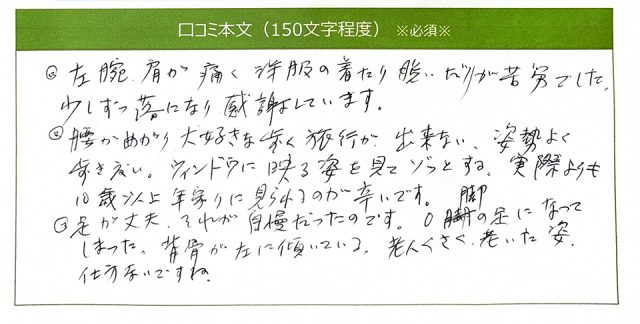 口コミ本文（150文字程度）※必須※
◎左腕、肩が痛く洋服の着たり脱いだりが苦労でした。
少しずつ落になり感謝しています。
◎腰がめがり大好きな歩く旅行が出来ない、姿勢よく
歩き度い。ウィンドウに映る姿を見てゾッとする。実際よりも
10歳以上年寄りに見られるのが辛いです。 脚
足が丈夫、それが自慢だったのです。O脚の足になって
しまった。背骨が左に傾いている。老人くさく、老いた姿、
仕方ないですね。